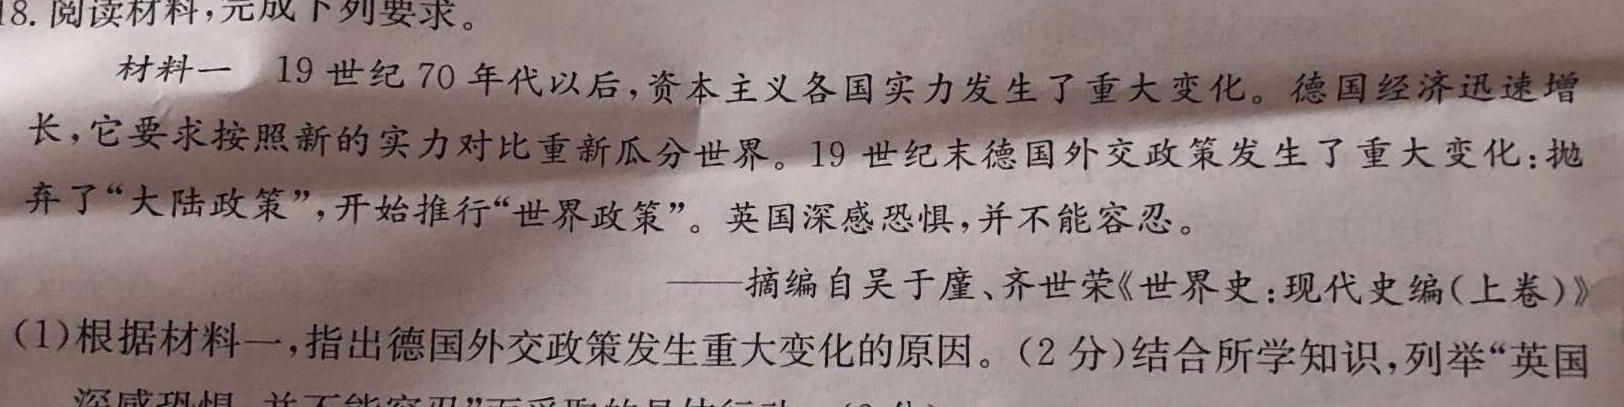 18. 阅读材料,完成下列要求。
材料一 19 世纪 70 年代以后,资本主义各国实力发生了重大变化。德国经济迅速增
长,它要求按照新的实力对比重新瓜分世界。19 世纪末德国外交政策发生了重大变化:抛
弃了“大陆政策”,开始推行“世界政策”。英国深感恐惧,并不能容忍。
——摘编自吴于廑、齐世荣《世界史:现代史编(上卷)》
(1)根据材料一,指出德国外交政策发生重大变化的原因。(2 分)结合所学知识,列举“英国
深感恐惧,并不能容忍”而采取的具体行动。